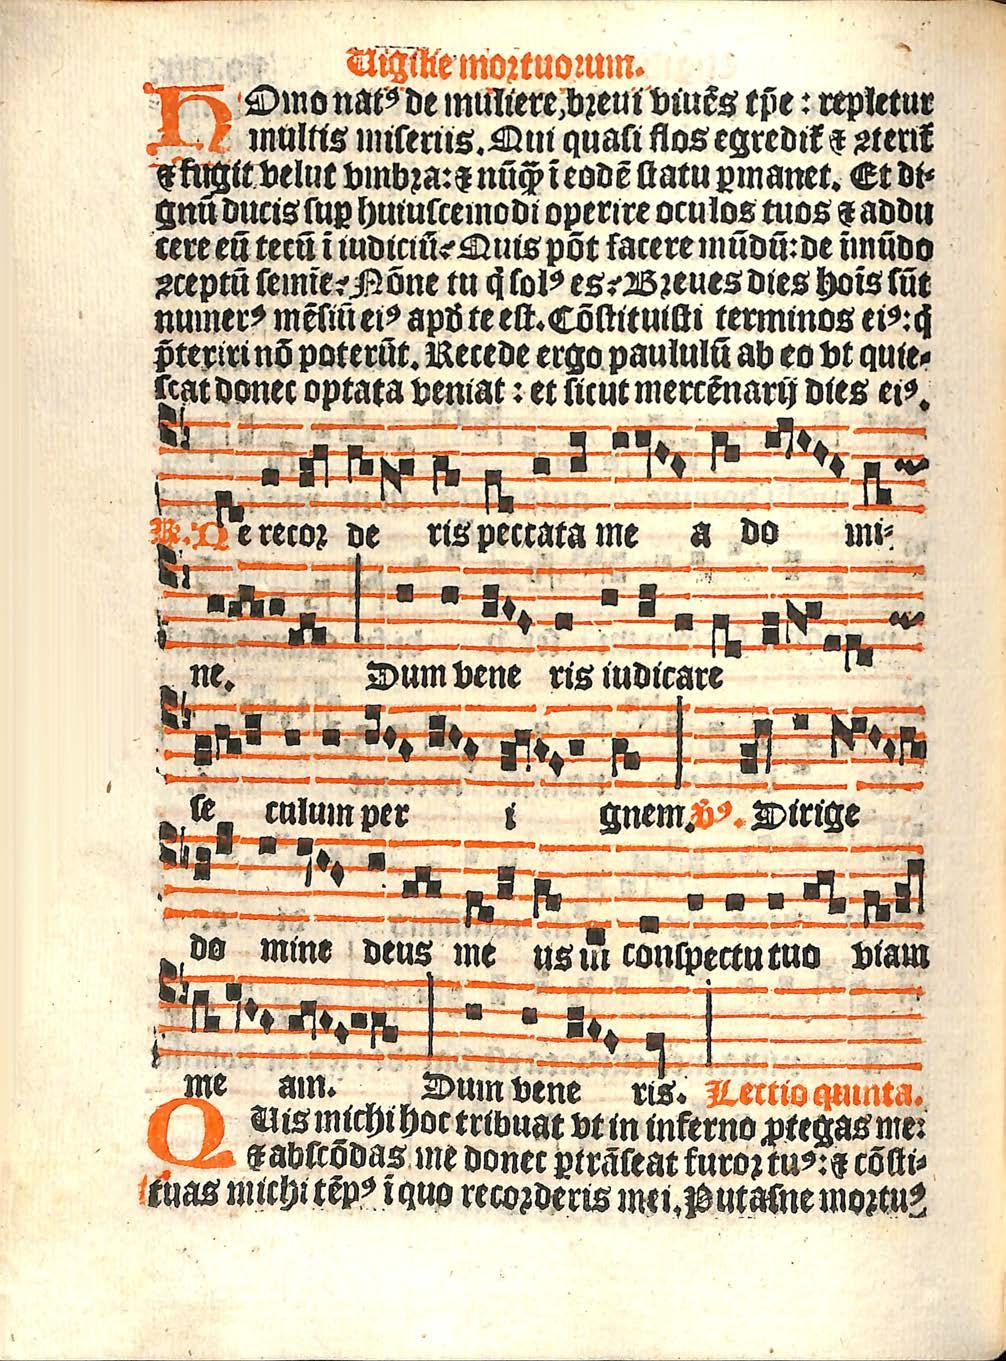 Uigilie mortuorum.
HOmo natꝰ de muliere, breui viuēs tp̄e : repletur
multis miseriis. Qui quasi flos egredit᷑ ⁊ ꝯterit᷑
⁊ fugit velut vmbra: ⁊ nūq̄ȝ ī eodē statu ꝑmanet. Et di⸗
gnū ducis suꝑ huiuscemodi operire oculos tuos ⁊ addu
cere eū tecū ī iudiciū? Quis pōt facere mūdū: de īmūdo
ꝯceptū semīe? Nōne tu q̇ solꝰ es? Breues dies hoīs sūt
numerꝰ mēsiū eiꝰ apd̄ te est. Cōstituisti terminos eiꝰ: q̇
p̄teriri nō poterūt. Recede ergo paululū ab eo vt quie⸗
scat donec optata veniat : et sicut mercēnarij dies eiꝰ.
℟. Ne recor de ris peccata me a do mi⸗
ne. Dum vene ris iudicare
se culum per i gnem. v̄ꝰ. Dirige
do mine deus me us in conspectu tuo viam
me am. Dum vene ris. Lectio quinta.
QUis michi hoc tribuat vt in inferno ꝓtegas me:
⁊ abscōdas me donec ꝑtrāseat furor tuꝰ: ⁊ cōsti⸗
tuas michi tēpꝰ ī quo recorderis mei. Putasne mortuꝰ